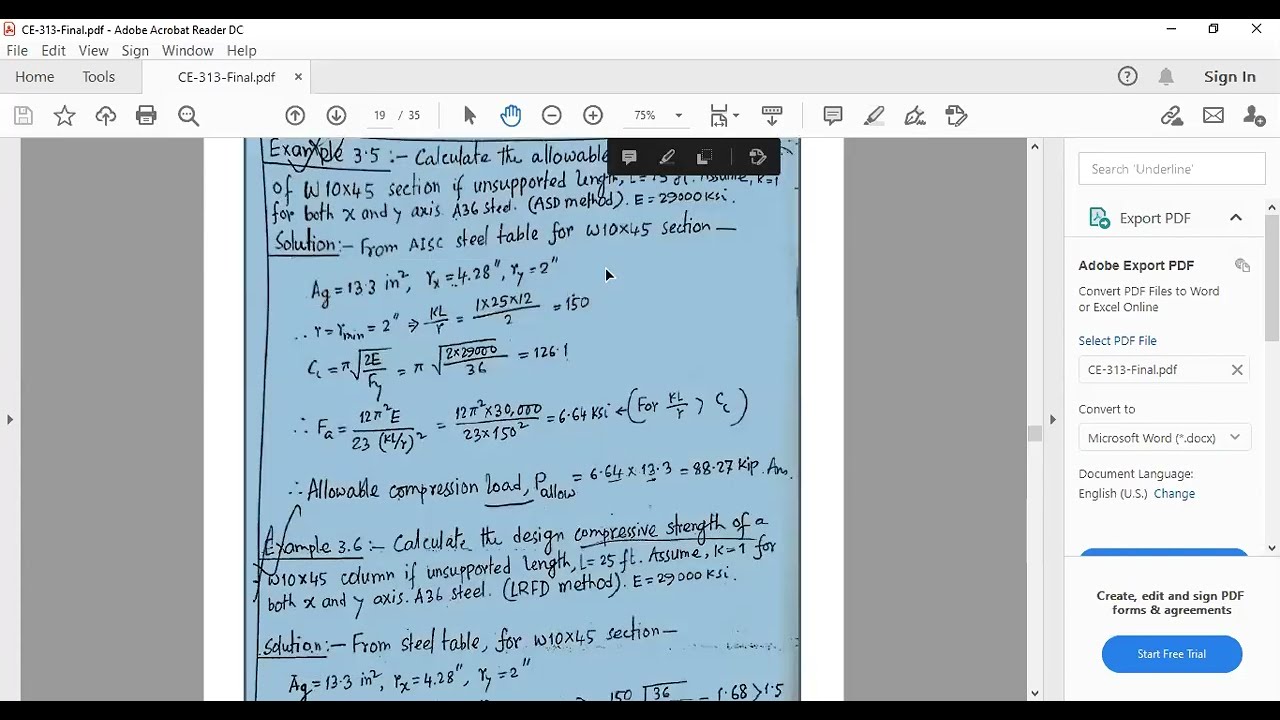 CE-313-Final.pdf - Adobe Acrobat Reader DC
File Edit View Sign Window Help
Home Tools CE-313-Final.pdf × Sign In
19 / 35 75%
Example 3.5 :- Calculate the allowable
of W10×45 section if unsupported length, L= ft. Assume, K=1
for both x and y axis. A36 steel. (ASD method). E = 29000 Ksi.
Solution:- From AISC steel table for W10×45 section —
Ag = 13.3 in², rx = 4.28", ry = 2"
∴ r = rmin = 2" ⇒ KL/r = 1×25×12/2 = 150
Cc = π√(2E/Fy) = π√(2×29000/36) = 126.1
∴ Fa = 12π²E/23 (KL/r)² = 12π²×30,000/23×150² = 6.64 Ksi ← (For KL/r > Cc)
∴ Allowable compression load, Pallow = 6.64 × 13.3 = 88.27 Kip. Ans.
Example 3.6 :- Calculate the design compressive strength of a
W10×45 column if unsupported length, L= 25 ft. Assume, K=1 for
both x and y axis. A36 steel. (LRFD method). E = 29000 Ksi.
Solution:- From steel table, for W10×45 section —
Ag = 13.3 in², rx = 4.28", ry = 2"
150 √36 = 1.68 > 1.5
Search 'Underline'
Export PDF
Adobe Export PDF
Convert PDF Files to Word
or Excel Online
Select PDF File
CE-313-Final.pdf
Convert to
Microsoft Word (*.docx)
Document Language:
English (U.S.) Change
Create, edit and sign PDF
forms & agreements
Start Free Trial